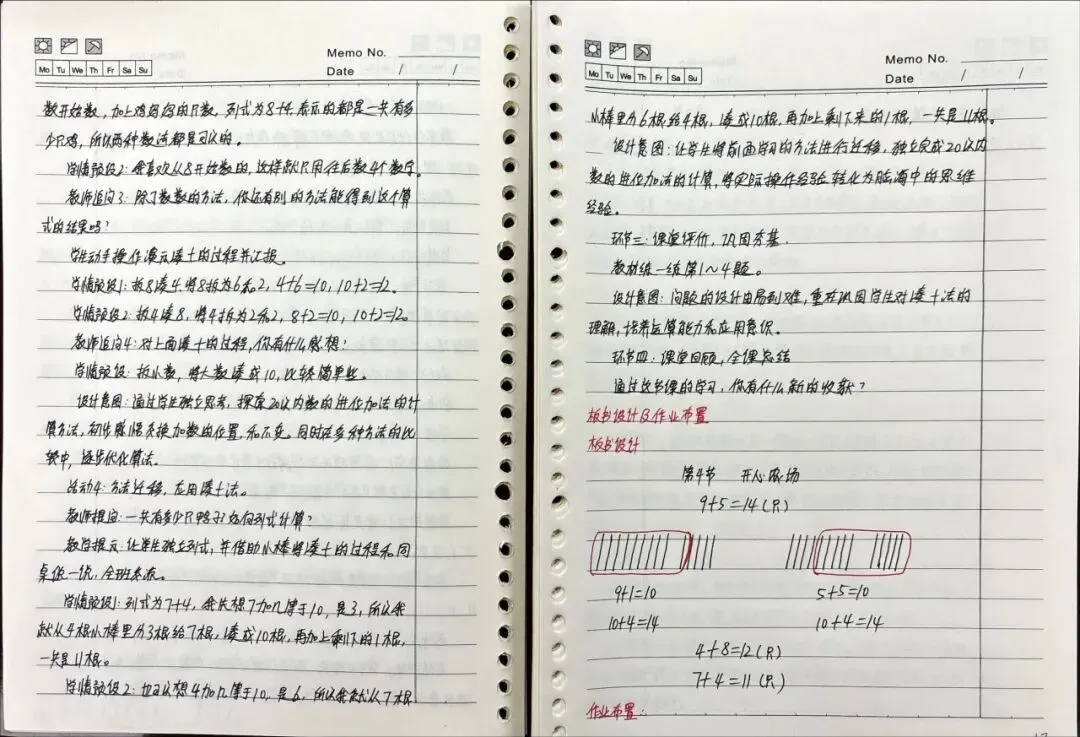 Memo No.
Date / /
Mo Tu We Th Fr Sa Su
数开始数，加上鸡妈妈的只数，列式为8+4，表示的都是一共有多
少只鸡，所以两种数法都是可以的。
学情预设2：我喜欢从8开始数的，这样就只用往后数4个数字。
教师追问3：除了数数的方法，你还有别的方法能得到这个算
式的结果吗？
学生动手操作演示凑十的过程并汇报。
学情预设1：拆8凑4，将8拆为6和2，4+6=10，10+2=12。
学情预设2：拆4凑8，将4拆为2和2，8+2=10，10+2=12。
教师追问4：对上面凑十的过程，你有什么感想？
学情预设：拆小数，将大数凑成10，比较简单些。
设计意图：通过学生独立思考，探索20以内数的进位加法的计
算方法，初步感悟交换加数的位置，和不变。同时在多种方法的比
较中，逐步优化算法。
活动4：方法迁移，应用凑十法。
教师提问：一共有多少只鸭子？如何列式计算？
教学提示：让学生独立列式，并借助小棒将凑十的过程和同
桌说一说，全班交流。
学情预设1：列式为7+4，我先想7加几等于10，是3，所以我
就从4根小棒里分3根给7根，凑成10根，再加上剩下的1根，
一共是11根。
学情预设2：也可以想4加几等于10，是6，所以我就从7根
Memo No.
Date / /
Mo Tu We Th Fr Sa Su
小棒里分6根给4根，凑成10根，再加上剩下来的1根，一共是11根。
设计意图：让学生将前面学习的方法进行迁移，独立完成20以内
数的进位加法的计算，将实际操作经验转化为脑海中的思维
经验。
环节三：课堂评价，巩固夯基。
教材练一练第1～4题。
设计意图：问题的设计由易到难，重在巩固学生对凑十法的
理解，培养运算能力和应用意识。
环节四：课堂回顾，全课总结
通过这节课的学习，你有什么新的收获？
板书设计及作业布置
板书设计
第4节 开心农场
9+5=14(只)
9+1=10 5+5=10
10+4=14 10+4=14
4+8=12(只)
7+4=11(只)
作业布置：